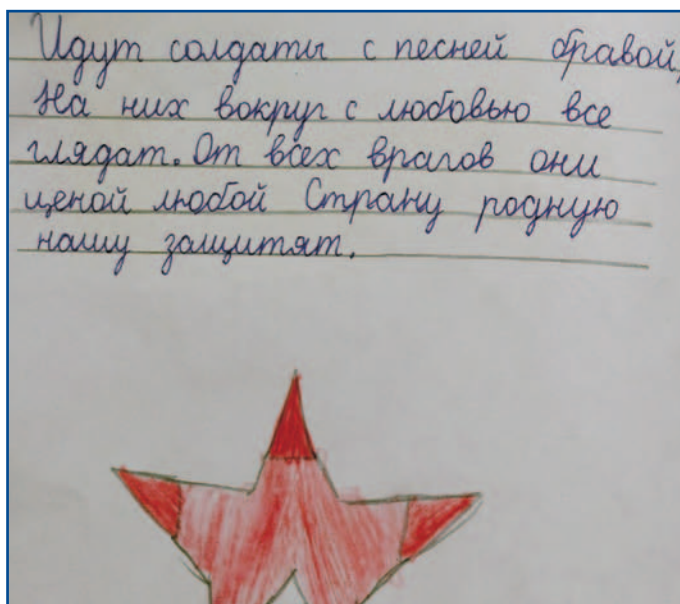 Идут солдаты с песней бравой,
На них вокруг с любовью все
глядат. От всех врагов они
ценой любой Страну родную
нашу защитят.